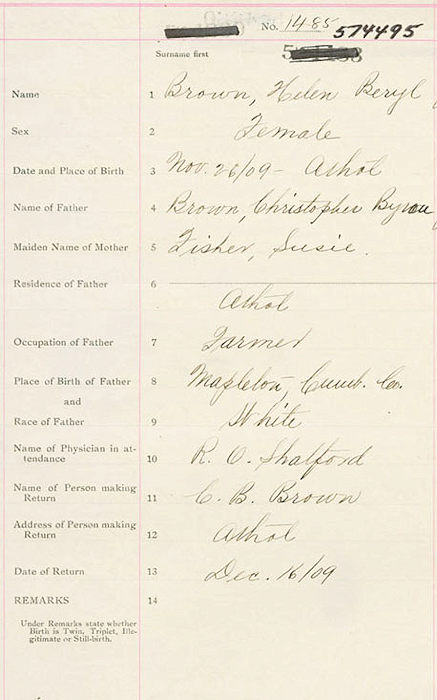 No. 1485 574495
Surname first
Name 1 Brown, Helen Beryl
Sex 2 Female
Date and Place of Birth 3 Nov. 26/09 - Athol
Name of Father 4 Brown, Christopher Byron
Maiden Name of Mother 5 Fisher, Susie.
Residence of Father 6
Athol
Occupation of Father 7 Farmer
Place of Birth of Father 8 Mapleton, Cumb. Co.
and
Race of Father 9 White
Name of Physician in at-
tendance 10 R. O. Shatford
Name of Person making
Return 11 C. B. Brown
Address of Person making
Return 12 Athol
Date of Return 13 Dec. 16/09
REMARKS 14
Under Remarks state whether
Birth is Twin, Triplet, Ille-
gitimate or Still-birth.